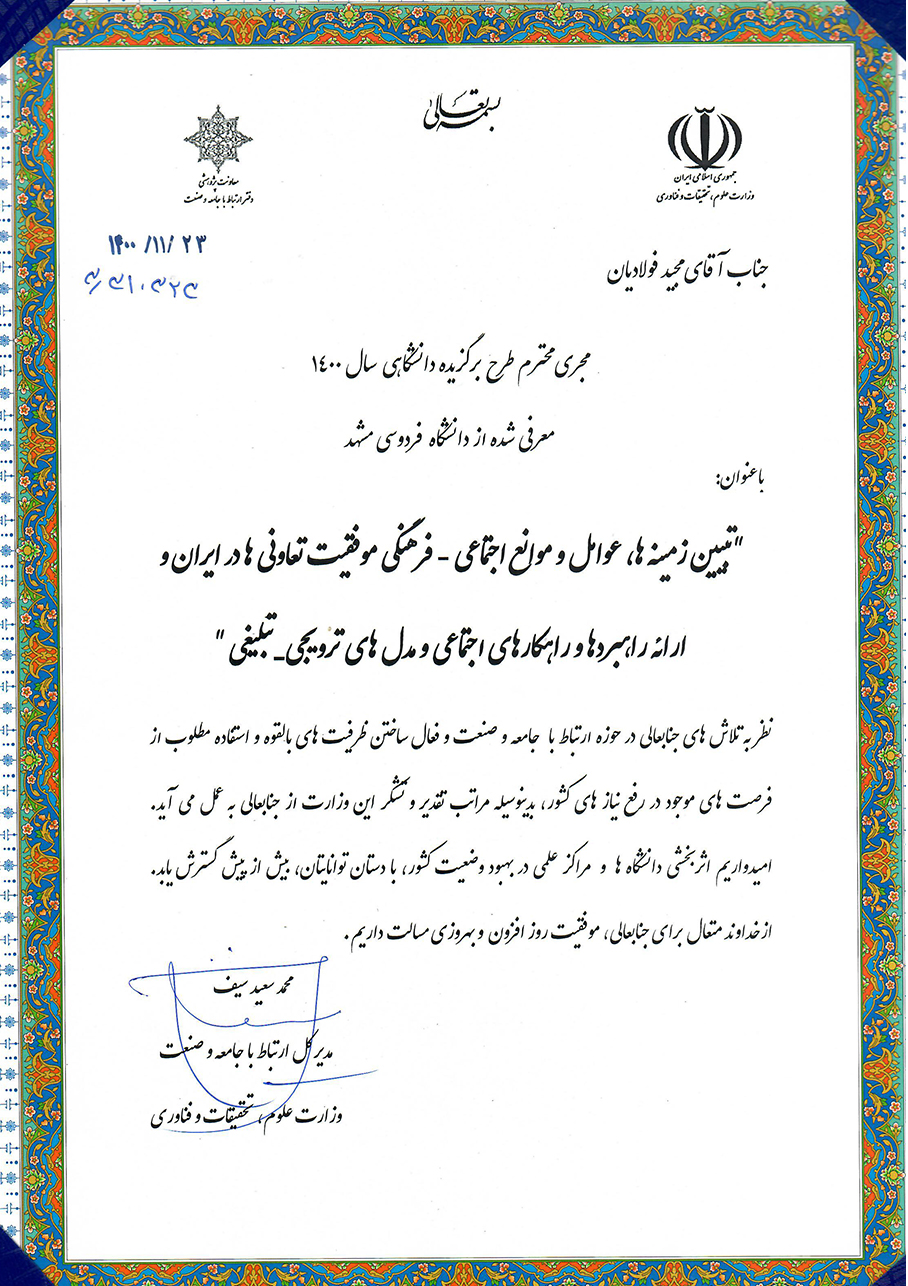 بسمه تعالی
جمهوری اسلامی ایران
وزارت علوم، تحقیقات و فناوری
معاونت پژوهشی
دفتر ارتباط با جامعه و صنعت
۱۴۰۰/۱۱/۲۳
جناب آقای مجید فولادیان
مجری محترم طرح برگزیده دانشگاهی سال ۱۴۰۰
معرفی شده از دانشگاه فردوسی مشهد
با عنوان:
"تبیین زمینه ها، عوامل و موانع اجتماعی - فرهنگی موفقیت تعاونی ها در ایران و
ارائه راهبردها و راهکارهای اجتماعی و مدل های ترویجی- تبلیغی"
نظر به تلاش های جنابعالی در حوزه ارتباط با جامعه و صنعت و فعال ساختن ظرفیت های بالقوه و استفاده مطلوب از
فرصت های موجود در رفع نیاز های کشور، بدینوسیله مراتب تقدیر و تشکر این وزارت از جنابعالی به عمل می آید.
امیدواریم اثربخشی دانشگاه ها و مراکز علمی در بهبود وضعیت کشور، با دستان توانایتان، بیش از پیش گسترش یابد.
از خداوند متعال برای جنابعالی، موفقیت روز افزون و بهروزی مسالت داریم.
محمد سعید سیف
مدیر کل ارتباط با جامعه و صنعت
وزارت علوم، تحقیقات و فناوری